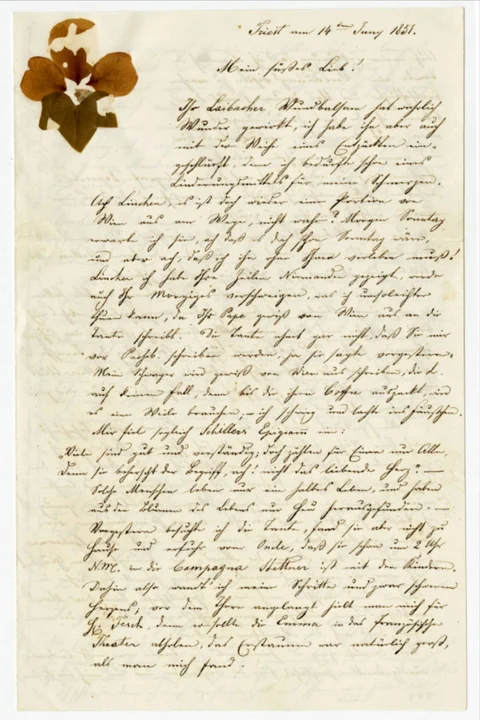 Triest am 14ten Juny 1851.
Mein süßes Lieb!
Ihr Laibacher Wundbalsam hat wahrlich
Wunder gewirkt, ich habe ihn aber auch
mit der Weihe eines Entzückten ein-
geschlürft, denn ich bedurfte schon eines
Linderungsmittels für meine Schmerzen.
Ach Linchen, es ist doch wieder eine Portion von
Wien aus am Wege, nicht wahr? Morgen Sonntag
erwart ich sie, ach daß es doch schon Sonntag wäre,
und aber ach, daß ich ihn ohne Ihnen verleben muß!
Linchen ich habe Ihre Zeilen Niemanden gezeigt, werde
auch Ihr Morgiges verschweigen, was ich umso leichter
thun kann, da Ihr Papa gewiß von Wien aus an die
Tante schreibt. Die Tante ahnt gar nicht, daß Sie mir
vor schreiben werden, ja sie sagte vorgestern:
Mein Schwager wird gewiß von Wien aus schreiben, die L.
auf keinen Fall, denn bis die ihren Coffre auspackt, wird
es eine Weile brauchen, – ich schwieg und lachte ins Fäustchen.
Mir fiel sogleich Schillers Epigramm ein:
Viele sind gut und verständig; doch zählen für Einen nur Alle,
Denn sie beherrscht der Begriff, ach! nicht das liebende Herz? –
Solche Menschen leben nur ein halbes Leben, und haben
aus den Blumen des Lebens nur Heu herausgefunden. –
Vorgestern besuchte ich die Tante, fand sie aber nicht zu
Hause und erfuhr vom Onkel, daß sie schon um 2 Uhr
N.M. in die Campagna Stettner ist mit den Kindern.
Dahin also wandt' ich meine Schritte und zwar schweren
Herzens, vor dem Thore angelangt hielt man mich für
H: denn er sollte die Emma in das französische
Theater abholen, das Erstaunen war natürlich groß,
als man mich fand.